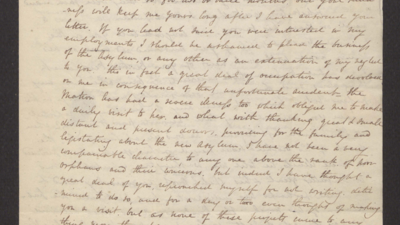 ness will keep me yours long after I have answered your
letter. If you had not since you were interested in my
employments I should be ashamed to plead the business
of the Asylum, or any other as an extenuation of my neglect
to you — this in fact a great deal of occupation has devolved
on me in consequence of that unfortunate accident. The
Matron has had a severe illness too which obliged me to make
a daily visit to her, and what with thanking great & small
distant and present donors, providing for the family, and
legislating about the new asylum, I have not been a very
companionable character to any one above the rank of poor
orphans and their concerns. But indeed I have thought a
great deal of you, reproached myself for not writing, deter
mined to do so, and for a day or two even thought of making
you a visit but as none of these projects came to any